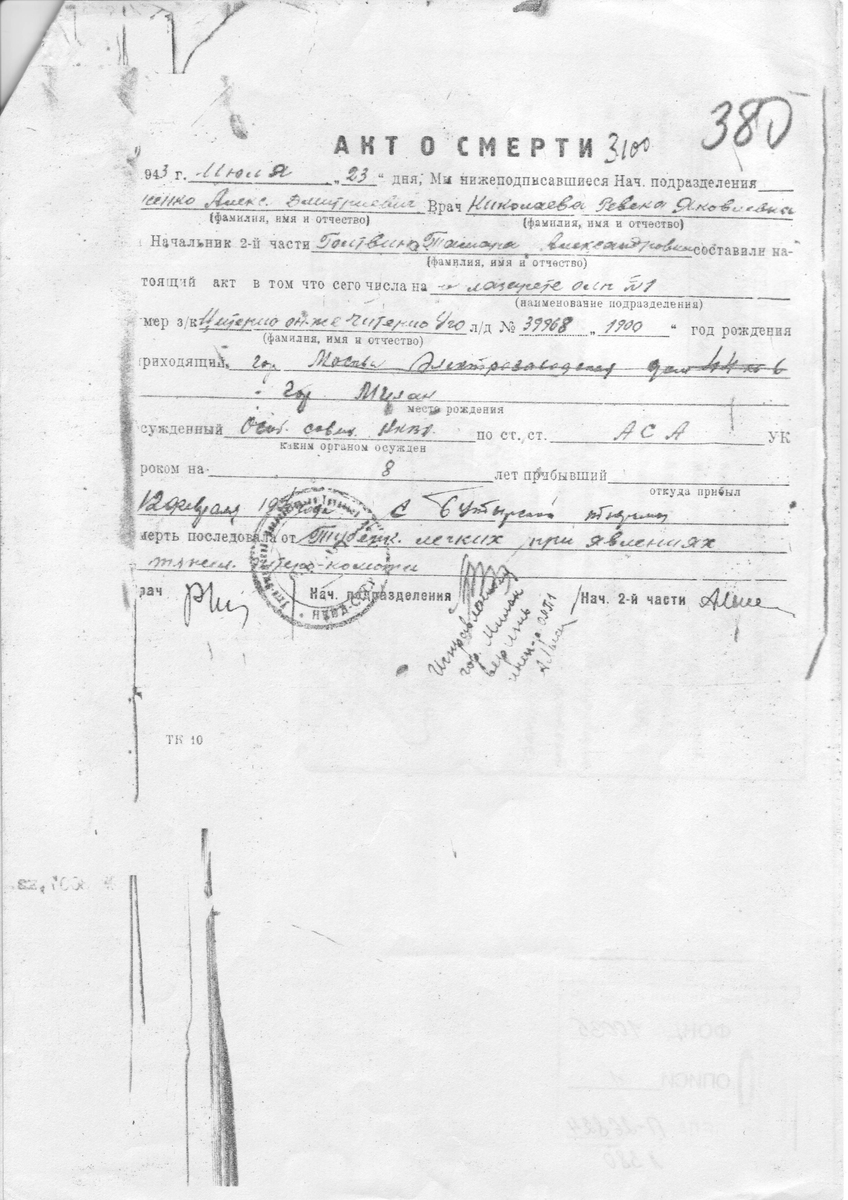 380
АКТ О СМЕРТИ 3100
943 г. Июля „23" дня, Мы нижеподписавшиеся Нач. подразделения
сенко Алекс. Дмитриевич Врач Николаева Ревека Яковлевна
(фамилия, имя и отчество) (фамилия, имя и отчество)
Начальник 2-й части Тамара Александровна составили на-
(фамилия, имя и отчество)
тоящий акт в том что сего числа на лазарете олп №1
(наименование подразделения)
мер з/к Цитерио он-же Читерио Уго л/д № 39968 „1900" год рождения
(фамилия, имя и отчество)
приходящий гор Москва Электрозаводская дом 44 кв 6
гор Милан
место рождения
сужденный Особ совещ НКВД по ст. ст. АСА УК
каким органом осужден
роком на 8 лет прибывший
откуда прибыл
12 февраля года с Бутырской тюрьмы
мерть последовала от Туберк. легких при явлениях
НКВД-СССР
рач Нач. подразделения Нач. 2-й части
Исправлению
гор. Милан
верить
ТК 10
ФОНД 10035
ОПИСИ 1